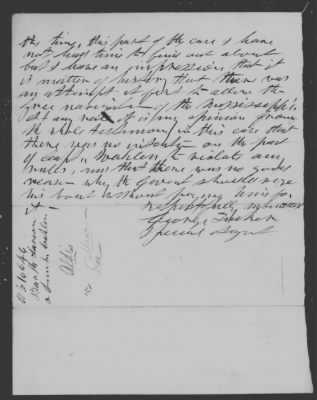 the time, this part of the case I have
not had time to find out about
but I have an impression that it
is matter of history that there was
an attempt at first to allow the
free navigation of the Mississippi
at any rate it is my opinion from
the whole testimony in this case that
there was no intention on the part
of Capt to violate any
rules, and that there was no good
reason why the Govmt should seize
his boat without paying him for
it —
Respectfully submitted
George Tucker
Special Agent